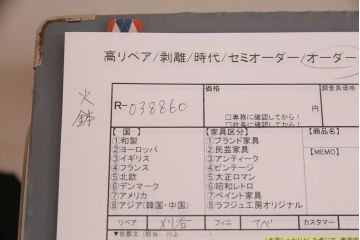 高リペア/剥離/時代/セミオーダー/オーダー
火鉢
R-038860
価格
円
調査員価格
□専務に確認してから!
□社長に確認してから!
【 国 】
①和製
②ヨーロッパ
③イギリス
④フランス
⑤北欧
⑥デンマーク
⑦アメリカ
⑧アジア(韓国・中国)
【家具区分】
①ブランド家具
②民芸家具
③アンティーク
④ビンテージ
⑤大正ロマン
⑥昭和レトロ
⑦ペイント家具
⑧ラフジュ工房オリジナル
【商品名】
【MEMO】
リペア 刈谷 フィニ アベ カスタマー
▼状態文(担当 川上